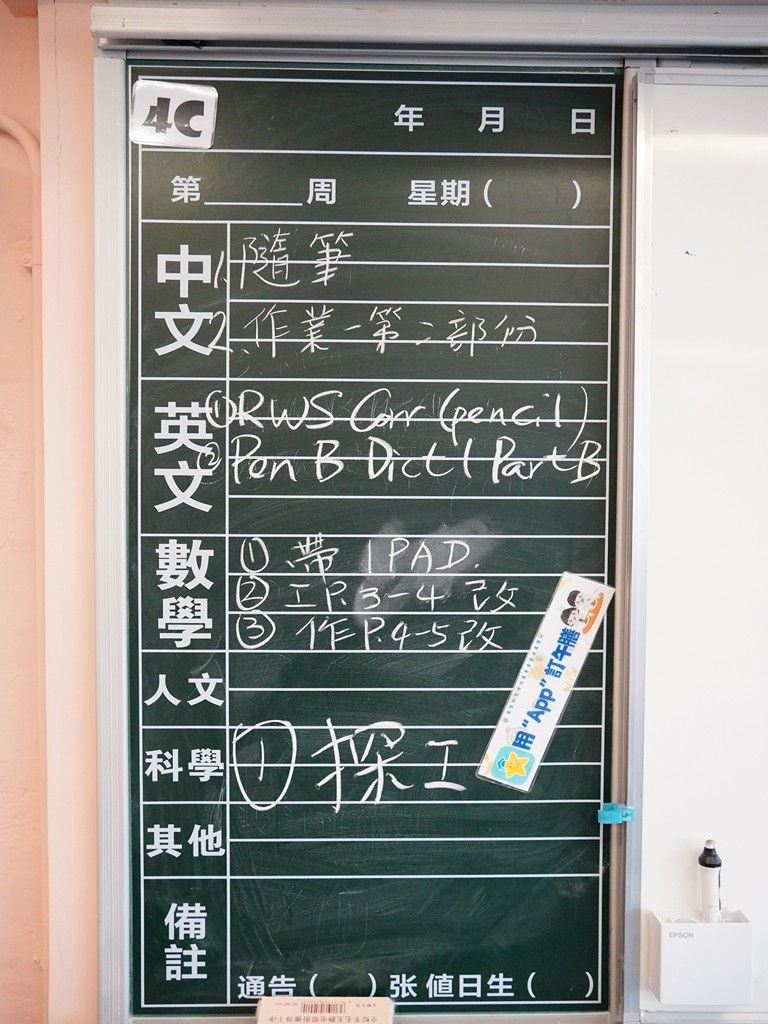 4C
年 月 日
第______周 星期( )
中文
1. 隨筆
2. 作業-第二部份
英文
① RWS Corr (pencil)
② Pen B Dict 1 Part B
數學
① 帶 IPAD.
② 工P.3-4 改
③ 作P.4-5改
人文
科學
① 探工
其他
備註
通告( )张 值日生( )
用“App”訂午膳
EPSON